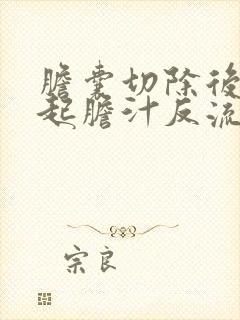 膽囊切除後
起膽汁反流
宗良